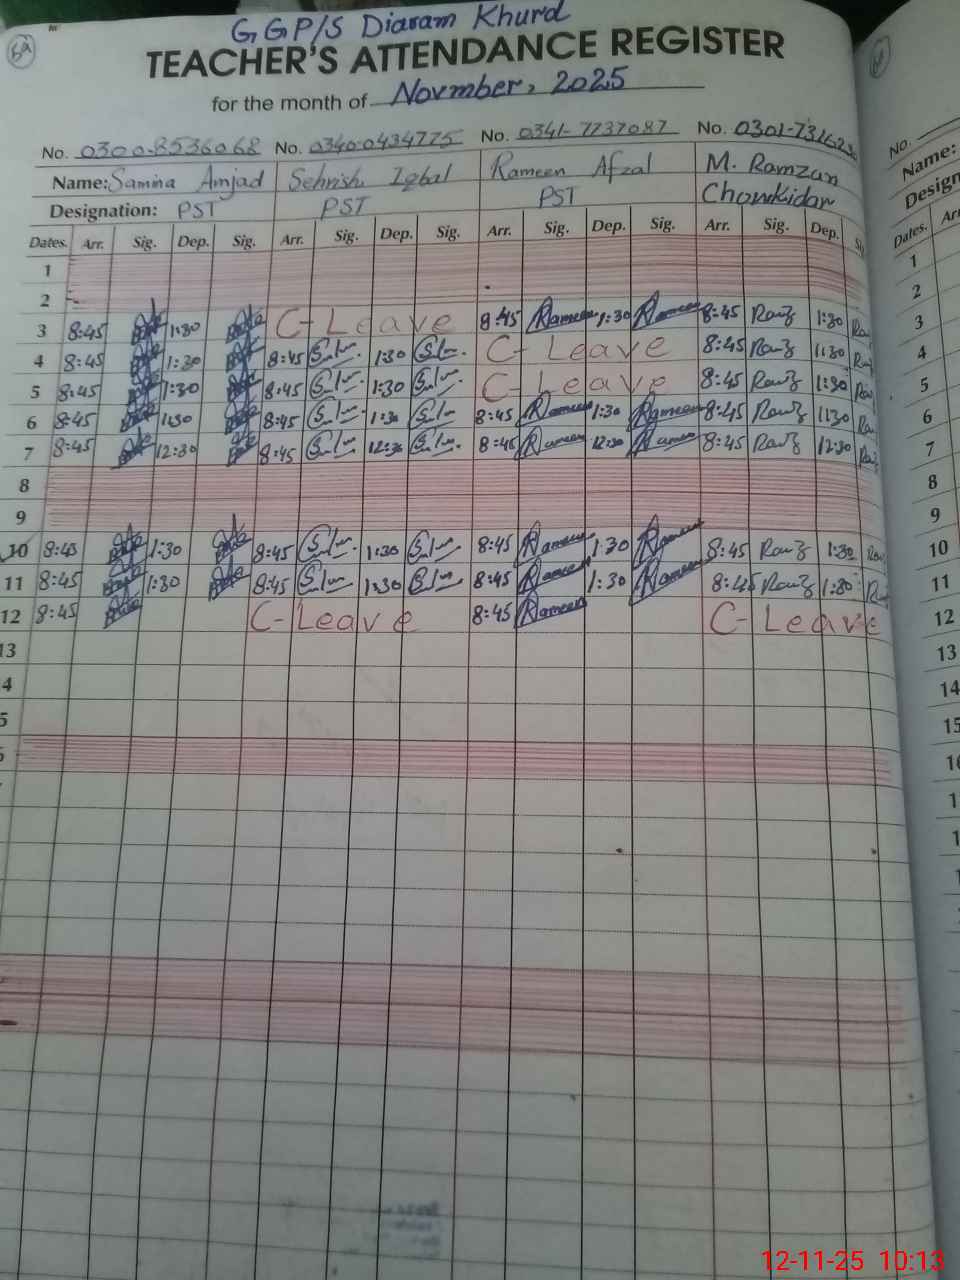 6a
GGP/S Diaram Khurd
TEACHER'S ATTENDANCE REGISTER
for the month of Novmber, 2025
No. 0300-8536068 No. 0340-0434775 No. 0341-7737087 No.
Name: Samina Amjad Sehrish Iqbal Rameen Afzal M. Ramzan
Designation: PST PST PST Chowkidar
Dates. Arr. Sig. Dep. Sig. Arr. Sig. Dep. Sig. Arr. Sig. Dep. Sig. Arr. Sig. Dep.
1
2
3 8:45 1:30 C-Leave 8:45 Rameen 1:30 Rameen 8:45 1:30
4 8:45 1:30 8:45 1:30 C-Leave 8:45 1:30
5 8:45 1:30 8:45 1:30 C-Leave 8:45 1:30
6 8:45 1:30 8:45 1:30 8:45 Rameen 1:30 Rameen 8:45 1:30
7 8:45 12:30 8:45 12:30 8:45 Rameen 12:30 Rameen 8:45 12:30
8
9
10 8:45 1:30 8:45 1:30 8:45 Rameen 1:30 Rameen 8:45 1:30
11 8:45 1:30 8:45 1:30 8:45 Rameen 1:30 Rameen 8:45 1:30
12 8:45 C-Leave 8:45 Rameen C-Leave
13
4
5
No.
Name:
Design
Dates. Arr
1
2
3
4
5
6
7
8
9
10
11
12
13
14
15
12-11-25 10:13